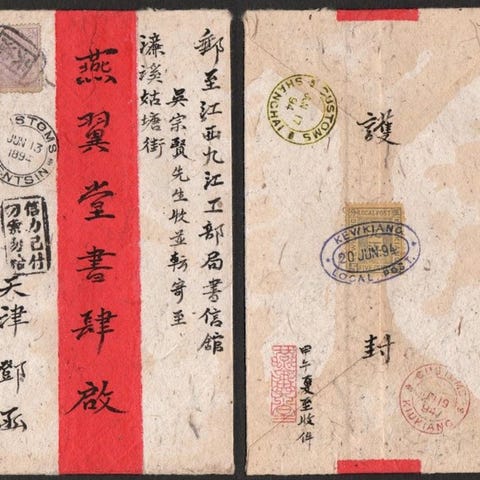 郵至江西九江工部局書信館
吳宗賢先生收並轉寄至
濂溪姑塘街
燕翼堂書肆啟
天津鄧函
信力已付
CUSTOMS
JUN 13
TIENTSIN
護
封
CUSTOMS
JUN 17
94
SHANGHAI
LOCAL POST
KEWKIANG
20 JUN. 94
LOCAL POST.
甲午夏至收件
CUSTOMS
JUN 19
94
KIUKIANG